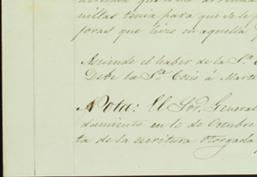 nillas tenia para que se le p
foras que hizo en aquella
Asciende el haber de la Sª
Debe la Sª Cosio á Mart
Nota: El Sor. General
damiento en 10 de Octubre
ta de la escritura otorgada